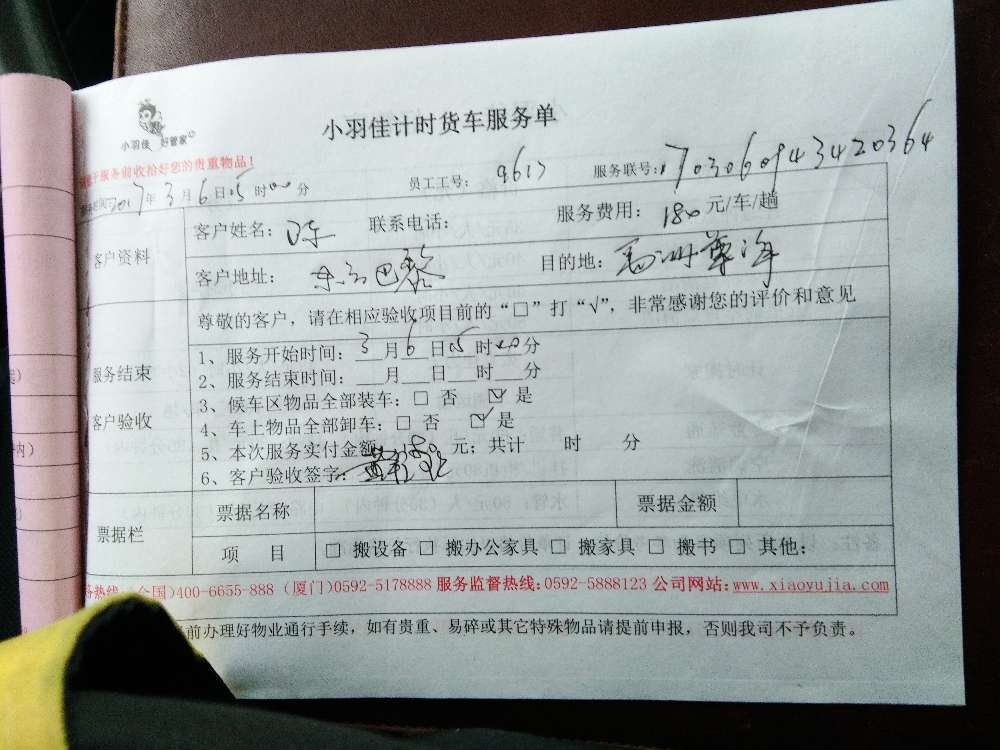 小羽佳 好管家
小羽佳计时货车服务单
于服务前收拾好您的贵重物品!
2017年3月6日15时00分 员工工号: 9617 服务联号: 170306094343420364
客户资料
客户姓名: 陈 联系电话: 服务费用: 180元/车/趟
客户地址: 东方巴黎 目的地:
尊敬的客户,请在相应验收项目前的“□”打“√”,非常感谢您的评价和意见
服务结束
客户验收
1、服务开始时间: 3月6日15时00分
2、服务结束时间: 月 日 时 分
3、候车区物品全部装车: □ 否 ☑ 是
4、车上物品全部卸车: □ 否 ☑ 是
5、本次服务实付金额 元; 共计 时 分
6、客户验收签字:
票据栏
票据名称 票据金额
项 目 □ 搬设备 □ 搬办公家具 □ 搬家具 □ 搬书 □ 其他:
务热线: (全国)400-6655-888 (厦门)0592-5178888 服务监督热线:0592-5888123 公司网站: www.xiaoyujia.com
前办理好物业通行手续,如有贵重、易碎或其它特殊物品请提前申报,否则我司不予负责。